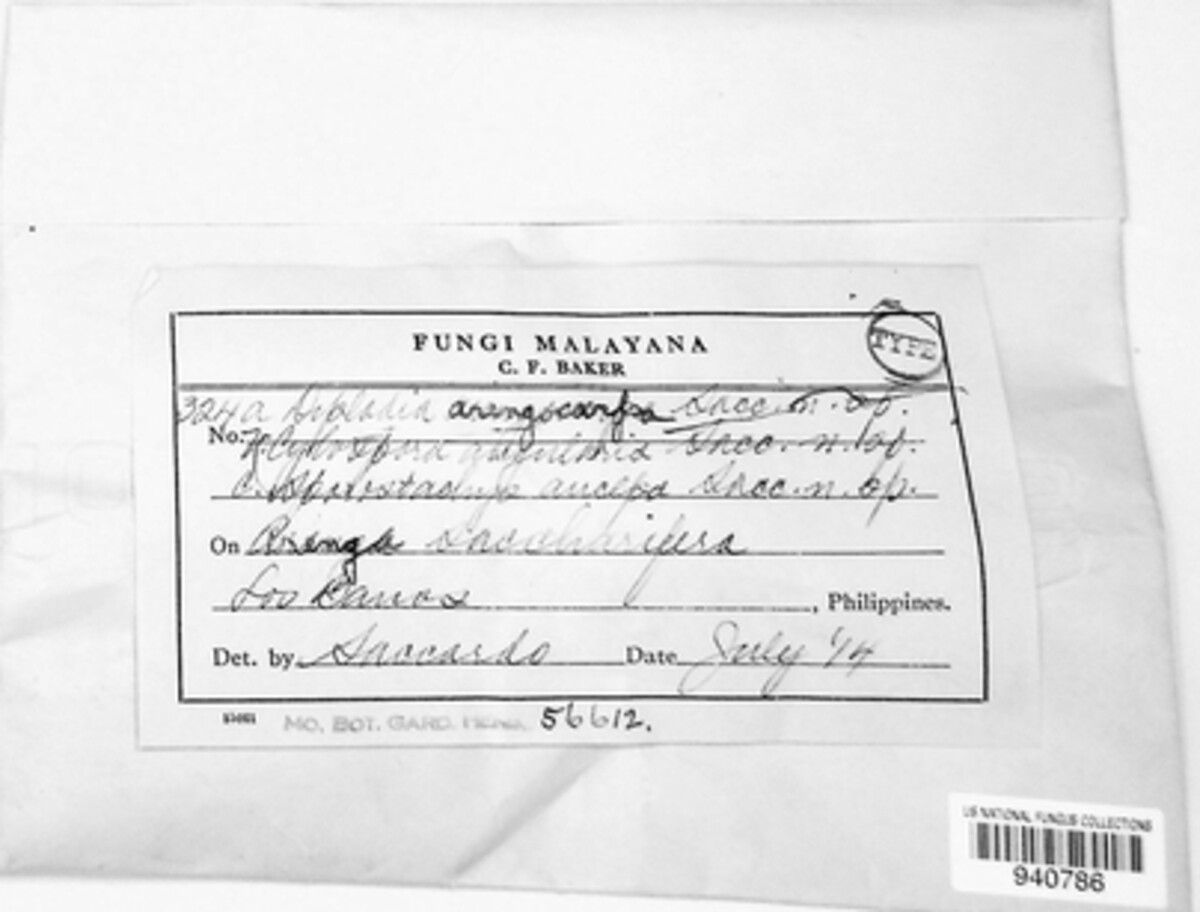 FUNGI MALAYANA
C. F. BAKER
TYPE
No. 324 a Diplodia arengocarpa Sacc. n. sp.
Cytospora Sacc. n. sp.
c. Sporostachys anceps Sacc. n. sp.
On Arenga saccharifera
Los Banos, Philippines.
Det. by Saccardo Date July '14
MO. BOT. GARD. HERB. 56612.
US NATIONAL FUNGUS COLLECTIONS
940786